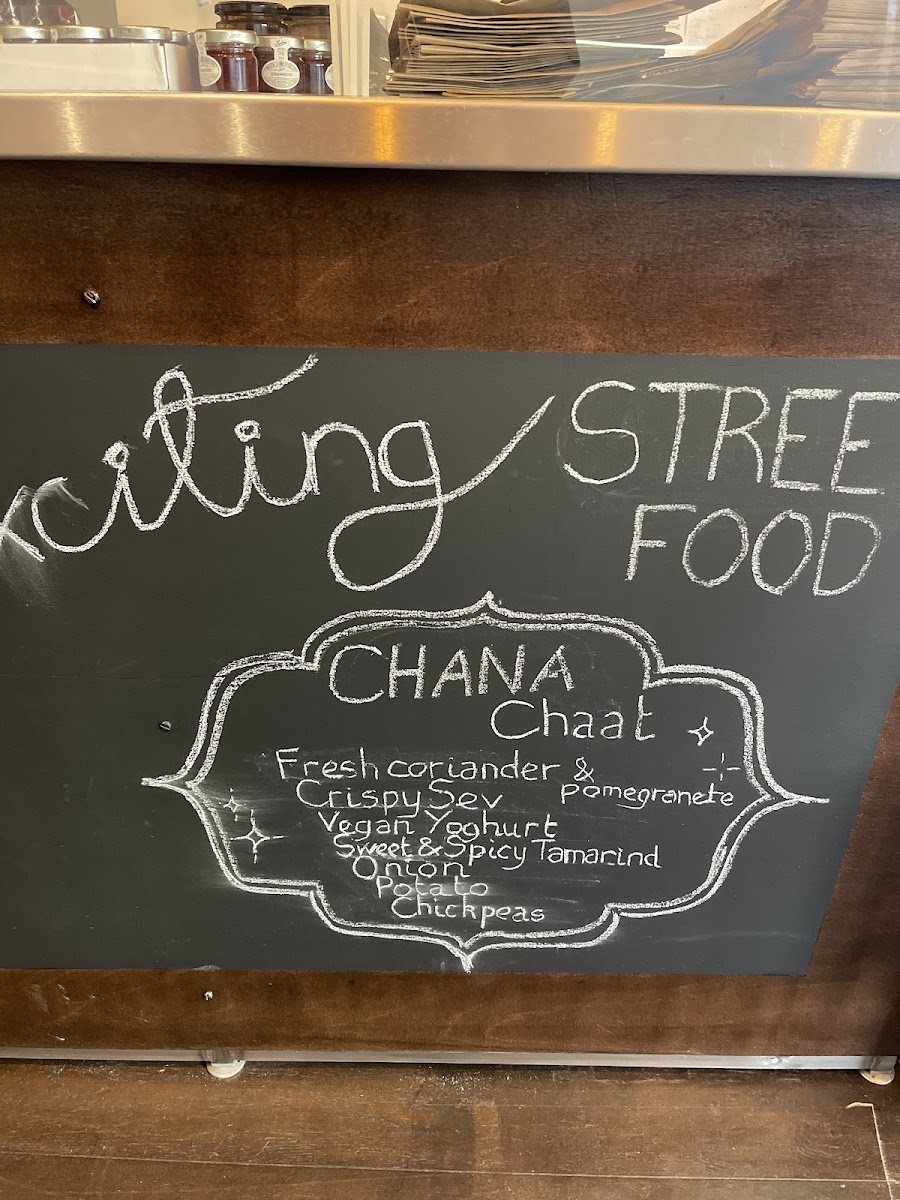 xciting STREE
FOOD
CHANA
Chaat
Fresh coriander &
pomegranete
Crispy Sev
Vegan Yoghurt
Sweet & Spicy Tamarind
Onion
Potato
Chickpeas